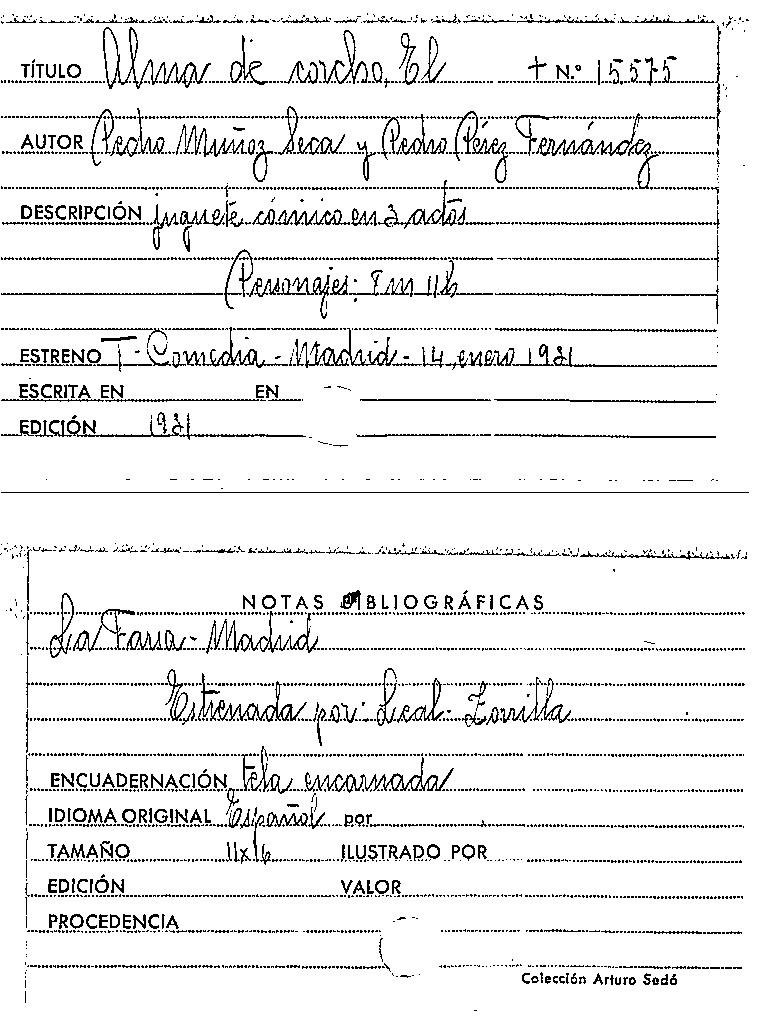 TÍTULO Alma de corcho, El + N.º 15575
AUTOR Pedro Muñoz Seca y Pedro Pérez Fernández
DESCRIPCIÓN juguete cómico en 3 actos
Personajes: 8 m 11 h
ESTRENO T. Comedia - Madrid - 14, enero 1931
ESCRITA EN EN
EDICIÓN 1931
NOTAS BIBLIOGRÁFICAS
La Farsa - Madrid
Estrenada por: Leal - Zorrilla
ENCUADERNACIÓN tela encarnada
IDIOMA ORIGINAL Español por
TAMAÑO 11x16 ILUSTRADO POR
EDICIÓN VALOR
PROCEDENCIA
Colección Arturo Sedó